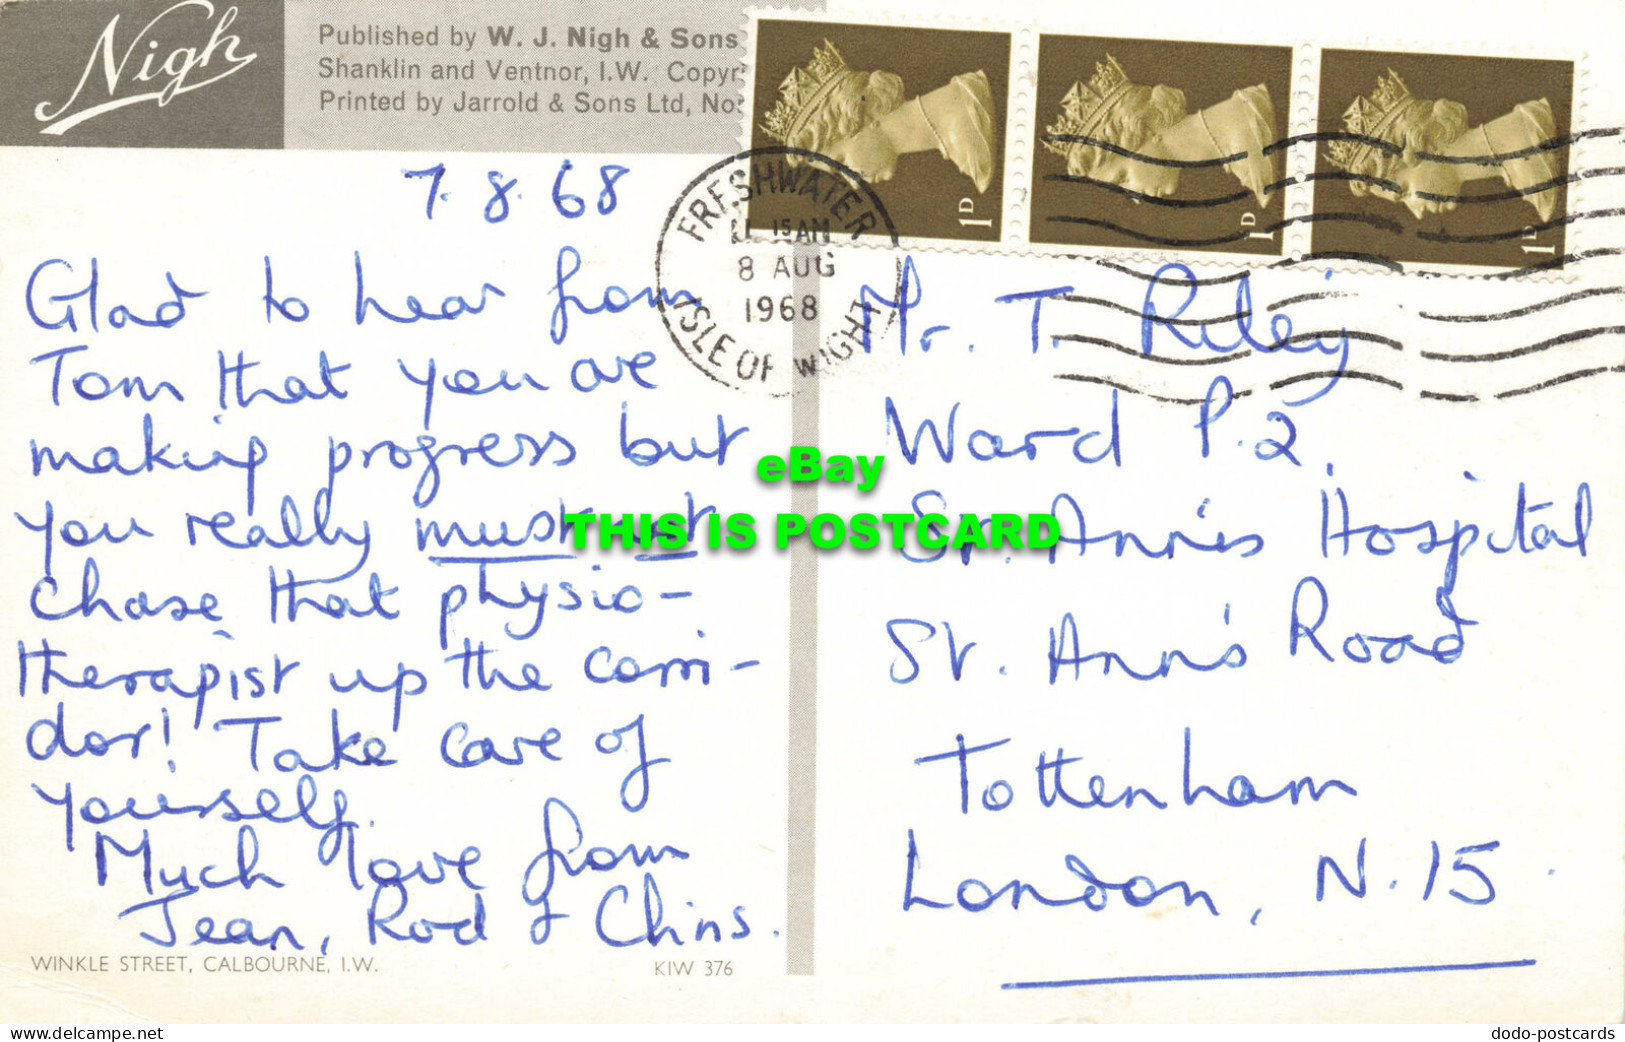 Nigh
Published by W. J. Nigh & Sons
Shanklin and Ventnor, I.W. Copyr
Printed by Jarrold & Sons Ltd, No
1D
1D
1D
FRESHWATER
15 AM
8 AUG
1968
ISLE OF WIGHT
7.8.68
Glad to hear from
Tom that you are
making progress but
you really must not
chase that physio-
therapist up the corri-
dor! Take care of
yourself.
Much love from
Jean, Rod & Chris.
Mr. T. Riley
Ward P.2.
St. Ann's Hospital
St. Ann's Road
Tottenham
London, N.15
eBay
THIS IS POSTCARD
WINKLE STREET, CALBOURNE, I.W.
KIW 376
www.delcampe.net
dodo-postcards